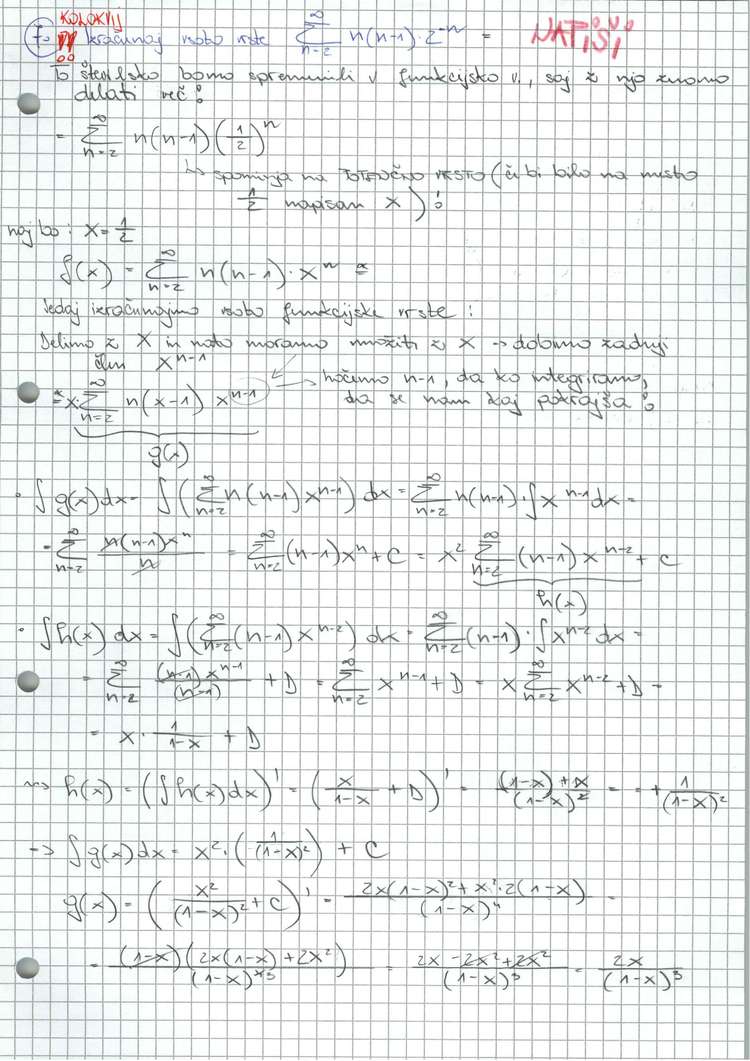 KOLOKVIJ
7. Izračunaj vsoto vrste \sum_{n=2}^{\infty} n(n-1) \cdot 2^{-n} = NATIŠI
To številsko bomo spremenili v funkcijsko v., saj z njo znamo
delati več!
= \sum_{n=2}^{\infty} n(n-1) (\frac{1}{2})^n
↳ spominja na POTENČNO VRSTO (če bi bilo na mesto
\frac{1}{2} napisan x)!
naj bo: x = \frac{1}{2}
f(x) = \sum_{n=2}^{\infty} n(n-1) \cdot x^n = *
Sedaj izračunajmo vsoto funkcijske vrste:
Delimo z x in nato moramo množiti z x → dobimo zadnji
člen x^{n-1}
* = x \cdot \sum_{n=2}^{\infty} n(x-1) x^{n-1} → hočemo n-1, da ko integriramo,
da se nam kaj pokrajša!
g(x)
• \int g(x) dx = \int (\sum_{n=2}^{\infty} n(n-1) x^{n-1}) dx = \sum_{n=2}^{\infty} n(n-1) \cdot \int x^{n-1} dx =
= \sum_{n=2}^{\infty} \frac{n(n-1) x^n}{n} = \sum_{n=2}^{\infty} (n-1) x^n + C = x^2 \sum_{n=2}^{\infty} (n-1) x^{n-2} + C
h(x)
• \int h(x) dx = \int (\sum_{n=2}^{\infty} (n-1) x^{n-2}) dx = \sum_{n=2}^{\infty} (n-1) \cdot \int x^{n-2} dx =
= \sum_{n=2}^{\infty} \frac{(n-1) x^{n-1}}{(n-1)} + D = \sum_{n=2}^{\infty} x^{n-1} + D = x \sum_{n=2}^{\infty} x^{n-2} + D =
= x \cdot \frac{1}{1-x} + D
⇝ h(x) = (\int h(x) dx)' = (\frac{x}{1-x} + D)' = \frac{(1-x)+x}{(1-x)^2} = + \frac{1}{(1-x)^2}
→ \int g(x) dx = x^2 \cdot (\frac{1}{(1-x)^2}) + C
g(x) = (\frac{x^2}{(1-x)^2} + C)' = \frac{2x(1-x)^2 + x^2 \cdot 2(1-x)}{(1-x)^4} =
= \frac{(1-x)(2x(1-x) + 2x^2)}{(1-x)^{4 3}} = \frac{2x - 2x^2 + 2x^2}{(1-x)^3} = \frac{2x}{(1-x)^3}